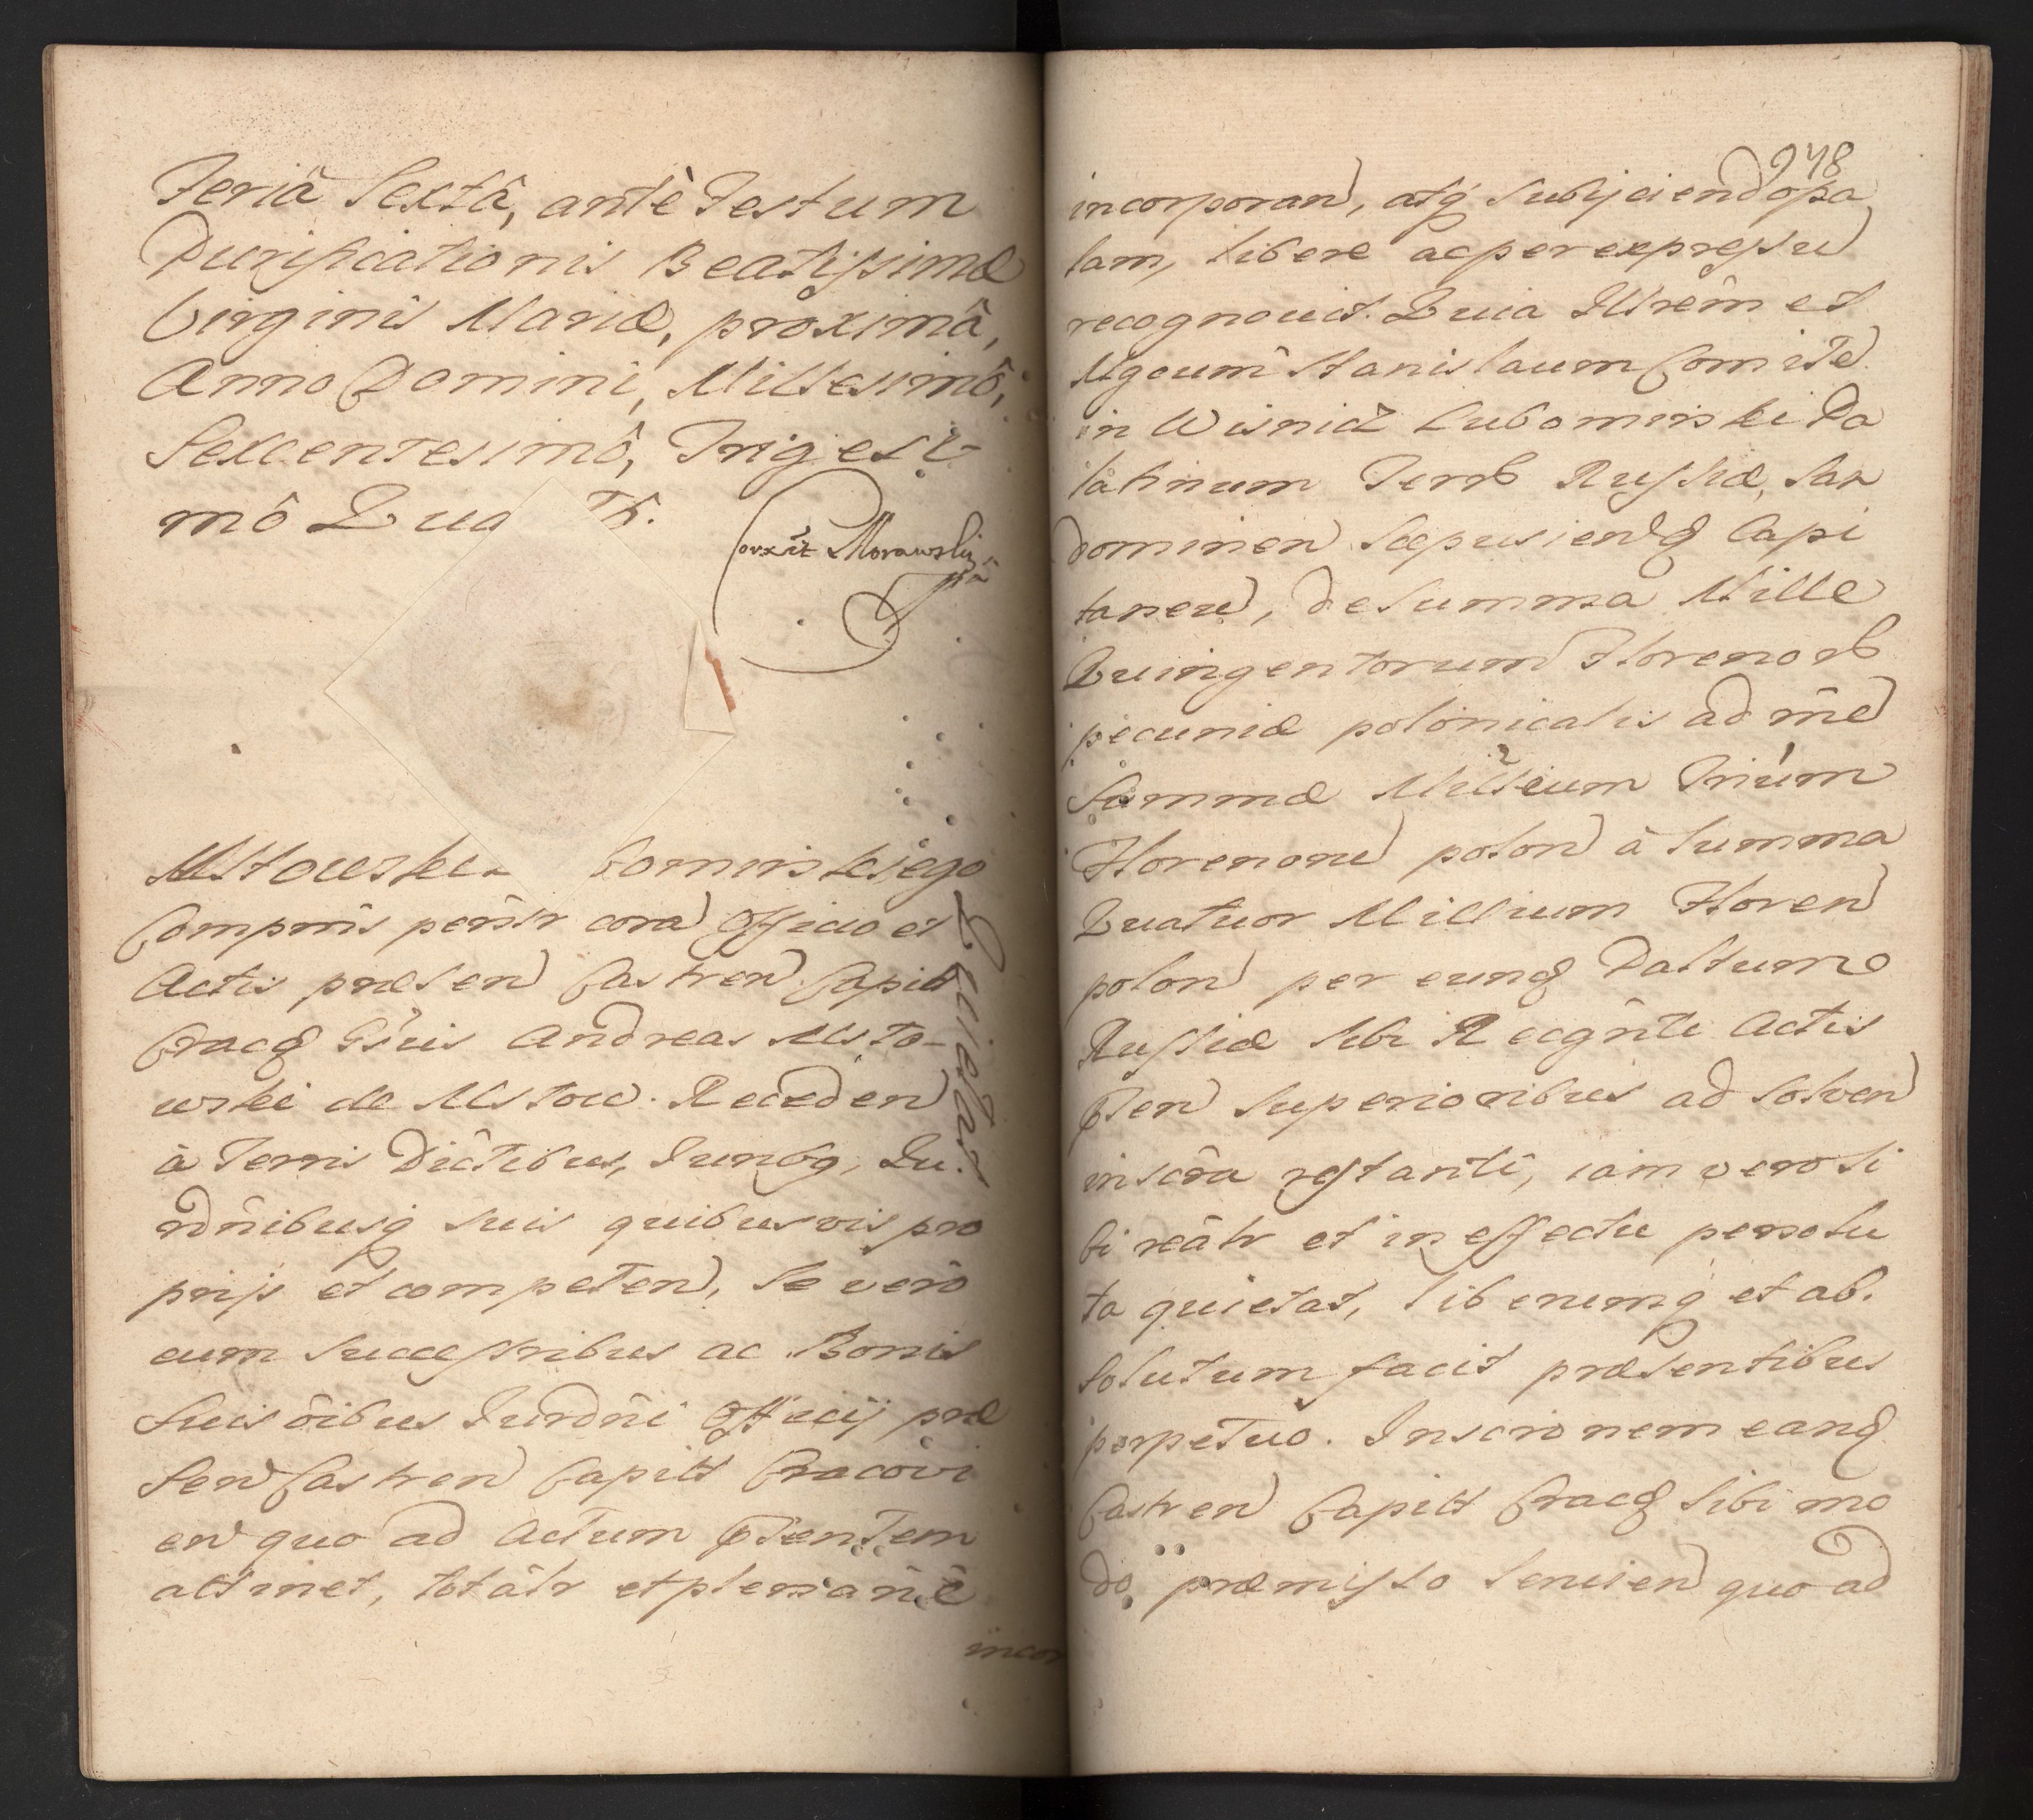 Feriâ Sextâ, antè Festum
Purificationis Beatissimæ
Virginis Mariæ, proximâ,
Anno Domini, Millesimô,
Sexcentesimô, Trigesi-
mô Qua
Correxit Morawsky
Mstowski komirskiego
Compnîs persîr corā Officio et
Actis præsen Castren Capit
Cracq Gsuis Andreas Msto-
wski de Mstow. Receden
à Terris Dictibus, Iunbq, Iu.
rdnîbusq suis quibusvis pro
prijs et competen, se verò
cum successribus ac Bonis
Suis oîbus Iurdnî Officij præ
sen Castren Capitt Cracovi
en quo ad Actum pñtentem
attinet, totâlr et plenariê
incor
Quietat
948
incorporan, atq subijciend opa
lam, libere ac per expressū
recognovit. Quia Illrem et
Mgcum Stanislaum Comitē
in Wisnicz Lubomirski Pa
latinum Terrb Russiæ, San
dominen Scepusienq Capi
taneū, de summa Mille
Quingentorum Florenorb
pecuniæ polonicalis ad mēd
Summæ Millium Trium
Florenorū polon à summa
Quatuor Millium Floren
polon per eunq Palturno
Russiæ sibi Recgnti Actis
pñten superioribus ad solven
inscra restanti, iam vero si
bi reâlr et in effectu persolu
ta quietat, liberumq et ab.
solutum facit præsentibus
perpetuo. Inscrionem eanq
Castren Capitt Cracq sibi mo
do præmisso servien quo ad